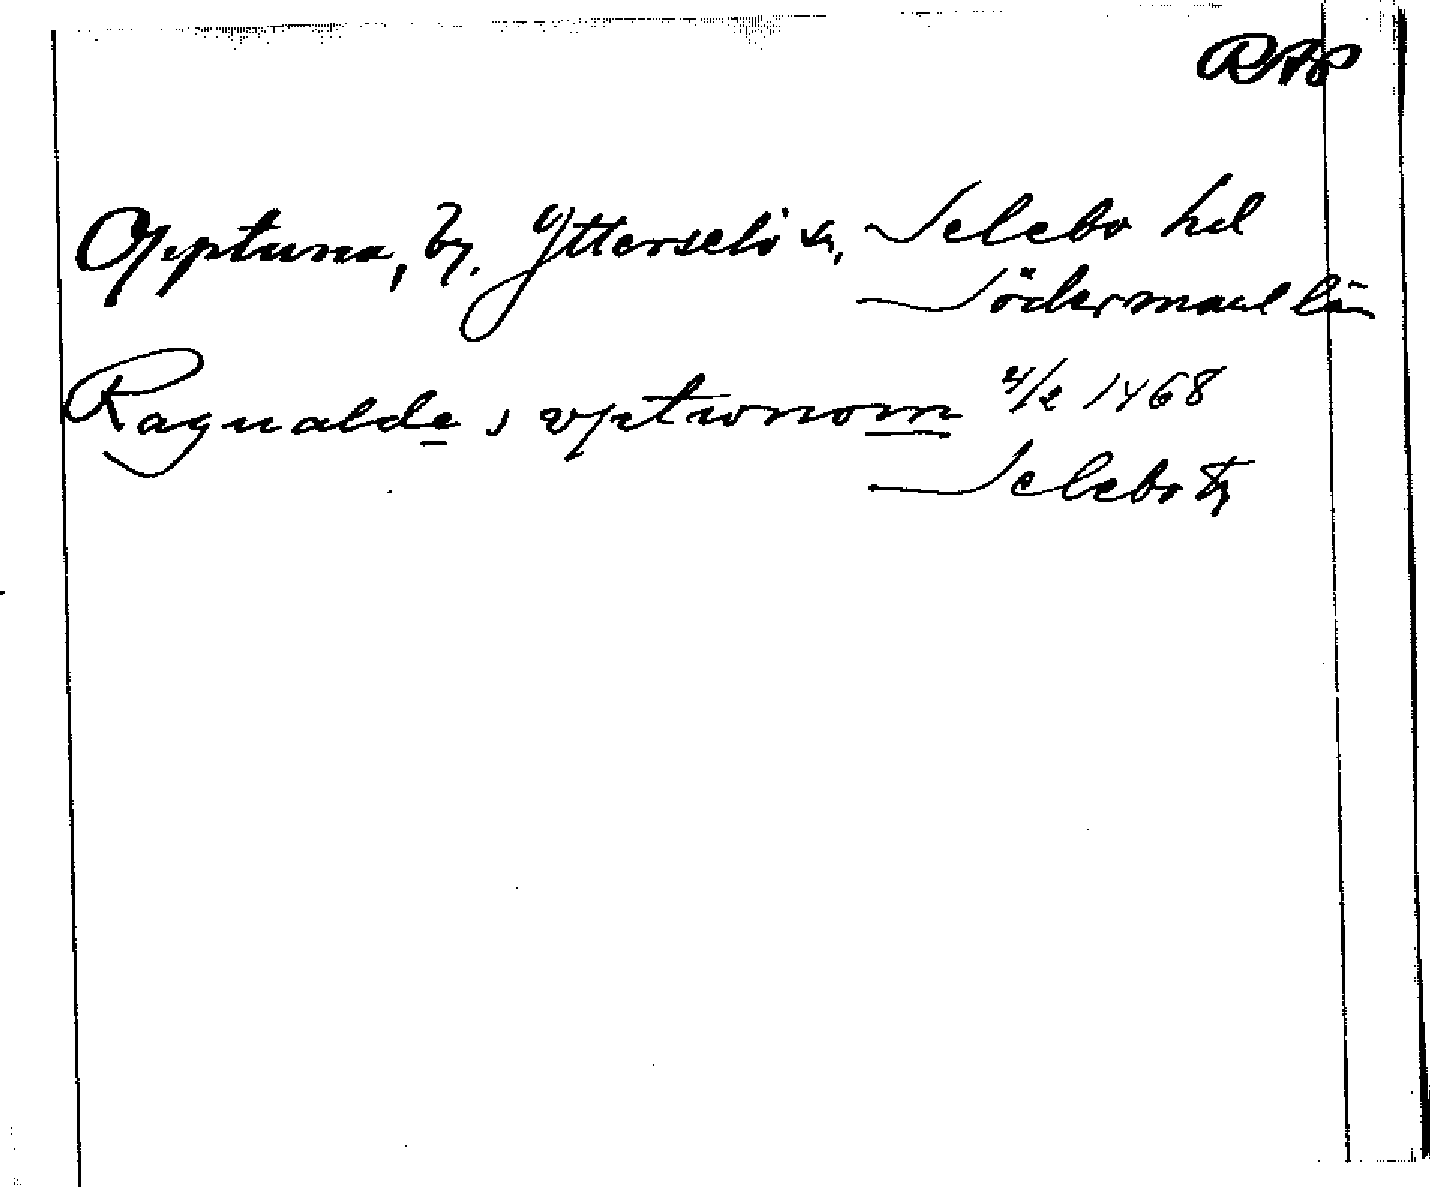 RAP
Opptuna, by. Ytterselö sn, Selebo hd
Södermanl län
Ragualde j vptwnom 4/2 1468
Selebo